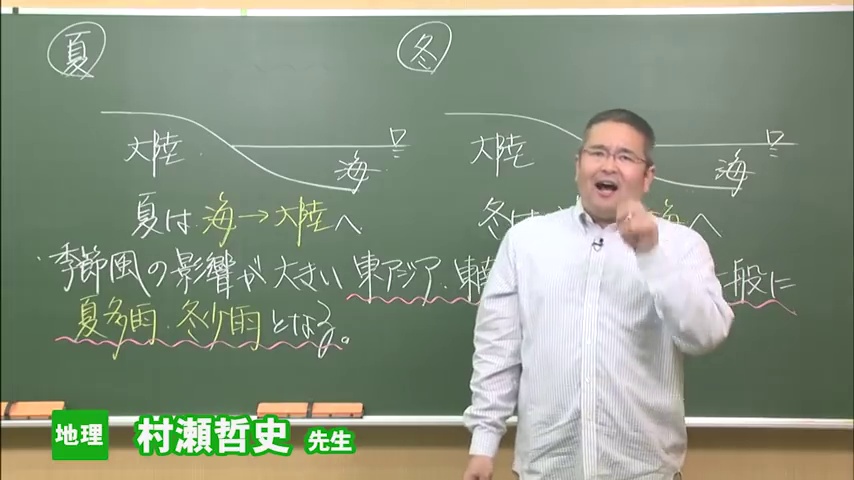 夏 冬
大陸 海 大陸 海
夏は 海→大陸へ 冬は 海へ
・季節風の影響が大きい 東アジア・東南 一般に
夏多雨・冬少雨となる。
地理 村瀬哲史 先生